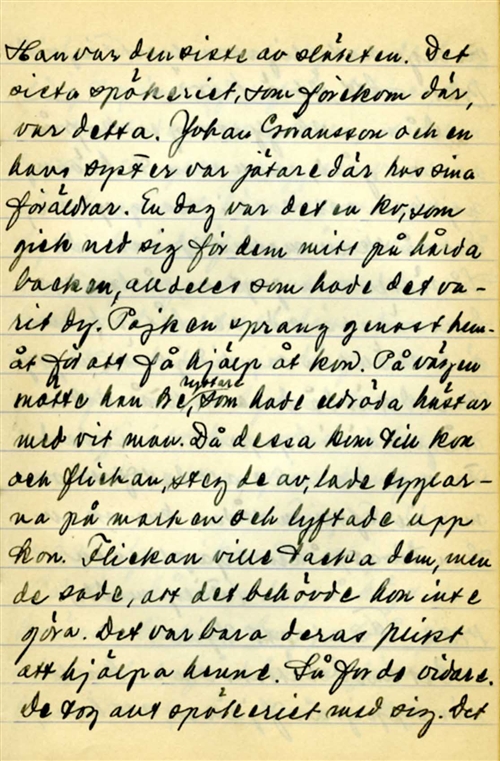 Han var den siste av släkten. Det
sista spökeriet, som förekom där,
var detta. Johan Göransson och en
hans syster var jätare där hos sina
föräldrar. En dag var det en ko, som
gick ned sig för dem mitt på hårda
backen, alldeles som hade det va-
rit dy. Pojken sprang genast hem-
åt för att få hjälp åt kon. På vägen
mötte han tre ryttare, som hade eldröda hästar
med vit man. Då dessa kom till kon
och flickan, steg de av, lade tyglar-
na på marken och lyftade upp
kon. Flickan ville tacka dem, men
de sade, att det behövde hon inte
göra. Det var bara deras plikt
att hjälpa henne. Så for de vidare.
De tog allt spökeriet med sig. Det